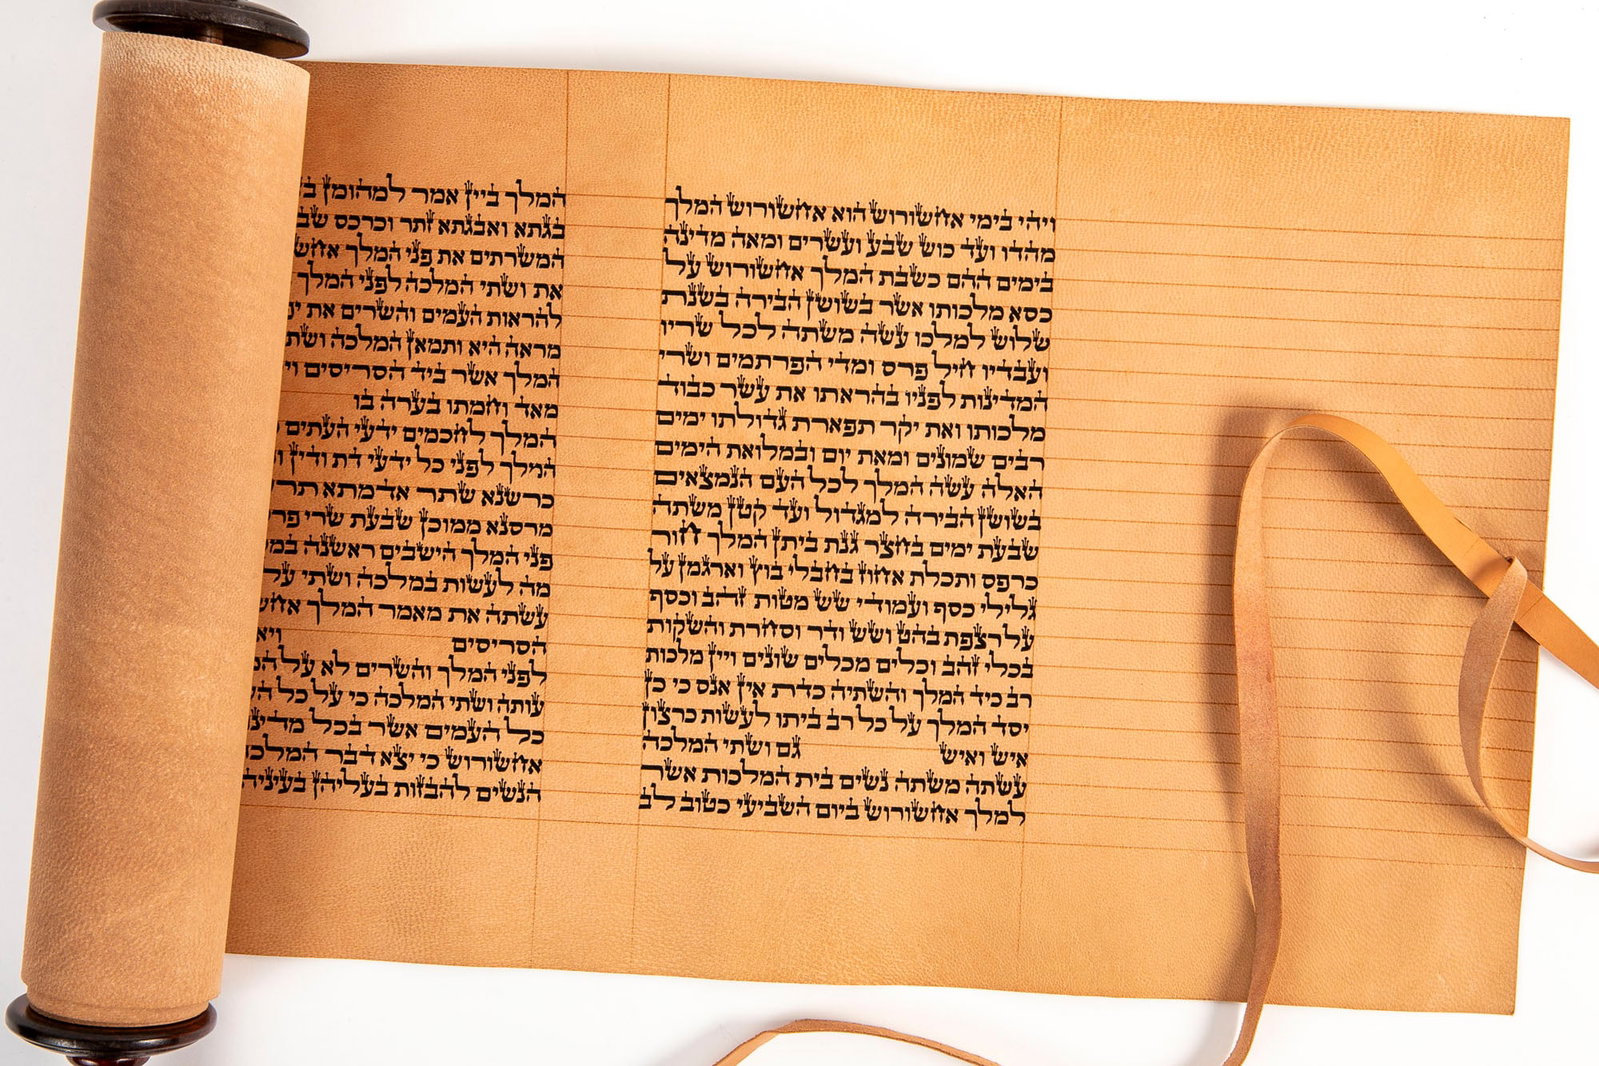 ויהי בימי אחשורוש הוא אחשורוש המלך
מהדו ועד כוש שבע ועשרים ומאה מדינה
בימים ההם כשבת המלך אחשורוש על
כסא מלכותו אשר בשושן הבירה בשנת
שלוש למלכו עשה משתה לכל שריו
ועבדיו חיל פרס ומדי הפרתמים ושרי
המדינות לפניו בהראתו את עשר כבוד
מלכותו ואת יקר תפארת גדולתו ימים
רבים שמונים ומאת יום ובמלואת הימים
האלה עשה המלך לכל העם הנמצאים
בשושן הבירה למגדול ועד קטן משתה
שבעת ימים בחצר גנת ביתן המלך חור
כרפס ותכלת אחוז בחבלי בוץ וארגמן על
גלילי כסף ועמודי שש מטות זהב וכסף
על רצפת בהט ושש ודר וסחרת והשקות
בכלי זהב וכלים מכלים שונים ויין מלכות
רב כיד המלך והשתיה כדת אין אנס כי כן
יסד המלך על כל רב ביתו לעשות כרצון
איש ואיש גם ושתי המלכה
עשתה משתה נשים בית המלכות אשר
למלך אחשורוש ביום השביעי כטוב לב
המלך ביין אמר למהומן
בגתא ואבגתא זתר וכרכס
המשרתים את פני המלך
את ושתי המלכה לפני המלך
להראות העמים והשרים את
מראה היא ותמאן המלכה
המלך אשר ביד הסריסים
מאד וחמתו בערה בו
המלך לחכמים ידעי העתים
המלך לפני כל ידעי דת ודין
כרשנא שתר אדמתא
מרסנא ממוכן שבעת שרי
פני המלך הישבים ראשנה
מה לעשות במלכה ושתי על
עשתה את מאמר המלך
הסריסים
לפני המלך והשרים לא על
עותה ושתי המלכה כי על כל
כל העמים אשר בכל
אחשורוש כי יצא דבר
הנשים להבזות בעליהן